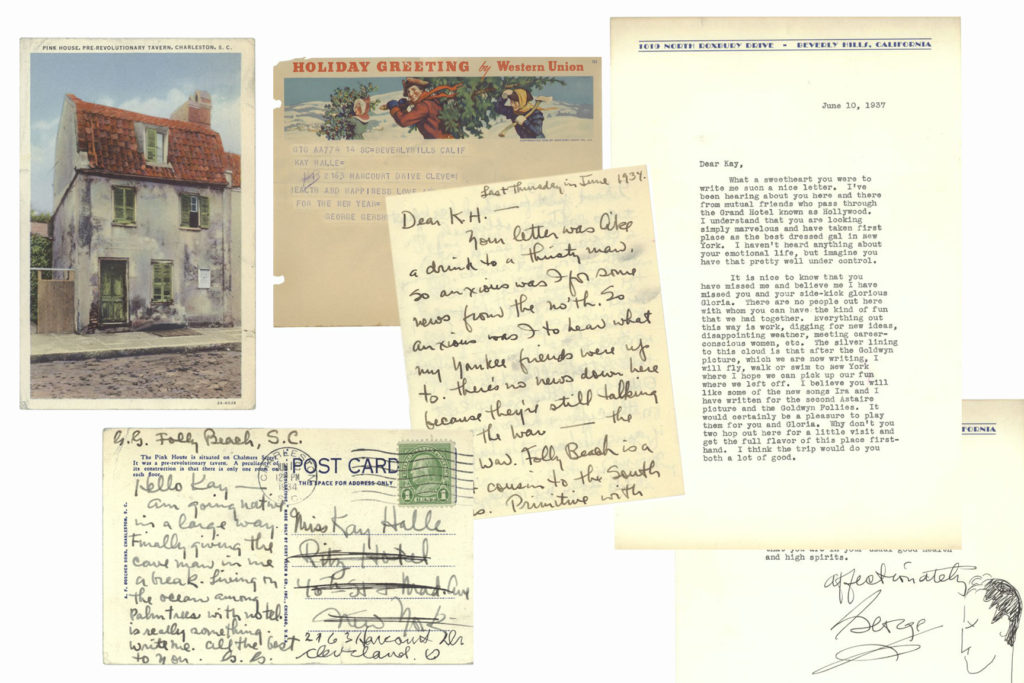 PINK HOUSE, PRE-REVOLUTIONARY TAVERN, CHARLESTON, S. C.
HOLIDAY GREETING by Western Union
GTG AA774 14 SC=BEVERLYHILLS CALIF
KAY HALLE=
2163 HARCOURT DRIVE CLEVE=
HEALTH AND HAPPINESS LOVE
FOR THE NEW YEAR=
GEORGE GERSH
Last Thursday in June 1934.
Dear K.H.
Your letter was like
a drink to a thirsty man,
so anxious was I for some
news from the no'th. So
anxious was I to hear what
my Yankee friends were up
to. There's no news down here
because they're still talking
the war — the
war. Folly Beach is a
cousin to the South
s. Primitive with
1019 NORTH ROXBURY DRIVE - BEVERLY HILLS, CALIFORNIA
June 10, 1937
Dear Kay,
What a sweetheart you were to
write me such a nice letter. I've
been hearing about you here and there
from mutual friends who pass through
the Grand Hotel known as Hollywood.
I understand that you are looking
simply marvelous and have taken first
place as the best dressed gal in New
York. I haven't heard anything about
your emotional life, but imagine you
have that pretty well under control.
It is nice to know that you
have missed me and believe me I have
missed you and your side-kick glorious
Gloria. There are no people out here
with whom you can have the kind of fun
that we had together. Everything out
this way is work, digging for new ideas,
disappointing weather, meeting career-
conscious women, etc. The silver lining
to this cloud is that after the Goldwyn
picture, which we are now writing, I
will fly, walk or swim to New York
where I hope we can pick up our fun
where we left off. I believe you will
like some of the new songs Ira and I
have written for the second Astaire
picture and the Goldwyn Follies. It
would certainly be a pleasure to play
them for you and Gloria. Why don't you
two hop out here for a little visit and
get the full flavor of this place first-
hand. I think the trip would do you
both a lot of good.
FORNIA
that you are in your usual good health
and high spirits.
affectionately
George
G.G. Folly Beach, S.C.
The Pink House is situated on Chalmers
It was a pre-revolutionary tavern. A peculiarity of
its construction is that there is only one room on
each floor.
POST CARD
THIS SPACE FOR ADDRESS ONLY
Hello Kay —
Am going native
in a large way.
Finally giving the
cave man in me
a break. Living on
the ocean among
palm trees with no tel.
is really something.
Write me. All the best
to you. G.G.
Miss Kay Halle
Ritz Hotel
& Mad. Ave
New York
2163 Harcourt Dr
Cleveland. O